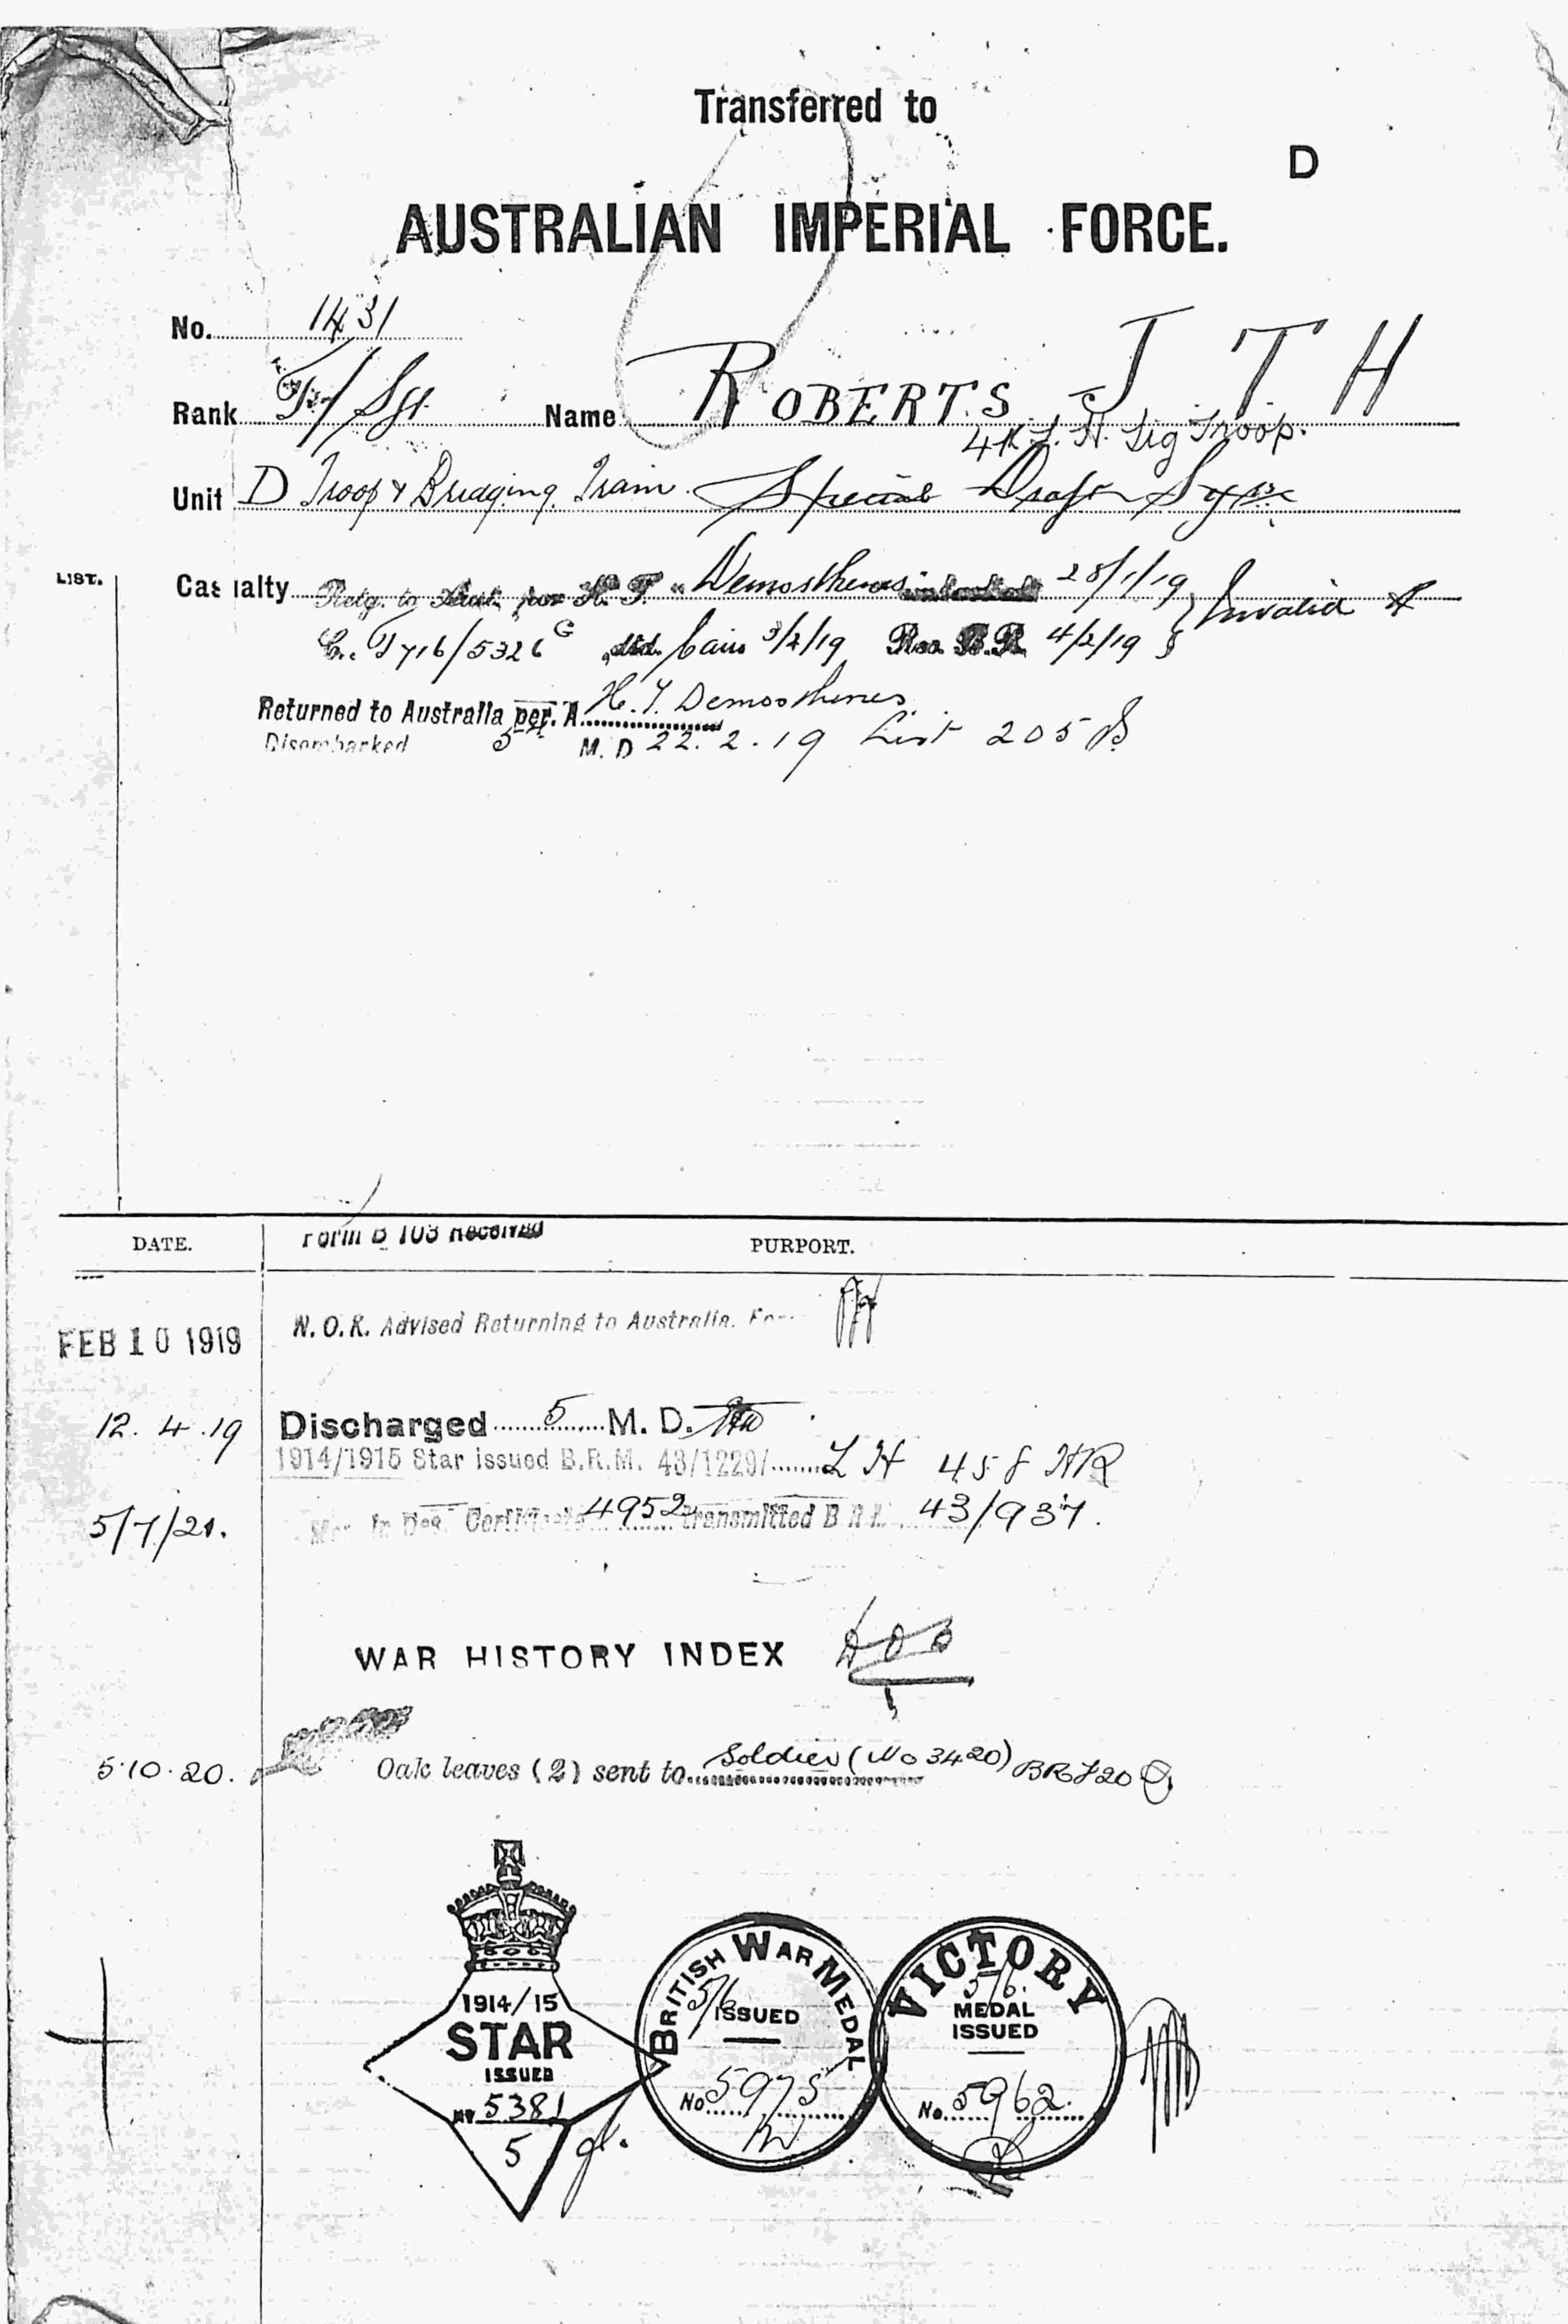 Transferred to
D
AUSTRALIAN IMPERIAL FORCE.
No. 1431
Rank T/Sgt Name ROBERTS J T H
4th L. H. Sig Troop.
Unit D Troop & Bridging Train. Special Draft Sigs
LIST.
Casualty Retg. to Aust. per H. T. "Demosthenes 28/1/19 Invalid
C. T716/5326 dtd. Cairo 3/2/19 Rec. B.R. 4/2/19
Returned to Australia per. A H.T. Demosthenes
Disembarked 5th M. D 22.2.19 List 205
DATE. Form B 103 Received PURPORT.
FEB 10 1919 N. O. K. Advised Returning to Australia.
12.4.19 Discharged 5 M. D.
1914/1915 Star issued B.R.M. 43/1229/ L H 458
5/7/21. Certificate 4952 transmitted 43/937.
WAR HISTORY INDEX
5.10.20. Oak leaves (2) sent to Soldier (No 3420)
1914/15
STAR
ISSUED
No 5381
5
BRITISH WAR MEDAL
5/6
ISSUED
No 5975
VICTORY
5/6.
MEDAL
ISSUED
No. 5962.